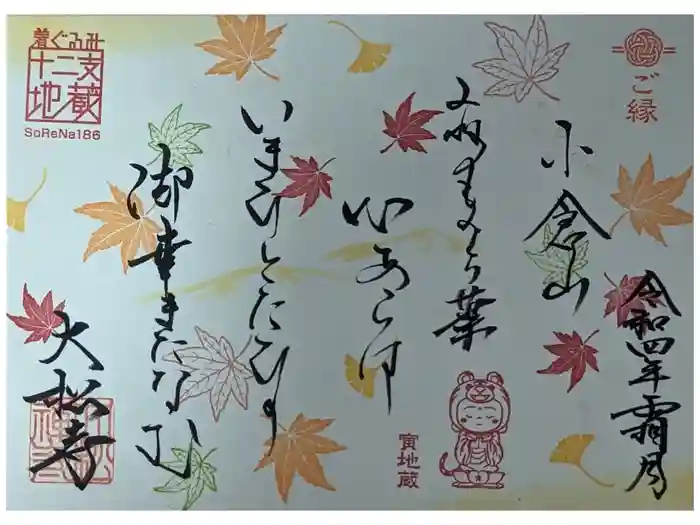 ご縁
令和四年霜月
小倉山
葉
心あらは
いまひとたひの
御幸またなむ
大松寺
寅地蔵
着ぐるみ
十二支
地蔵
SoReNa186